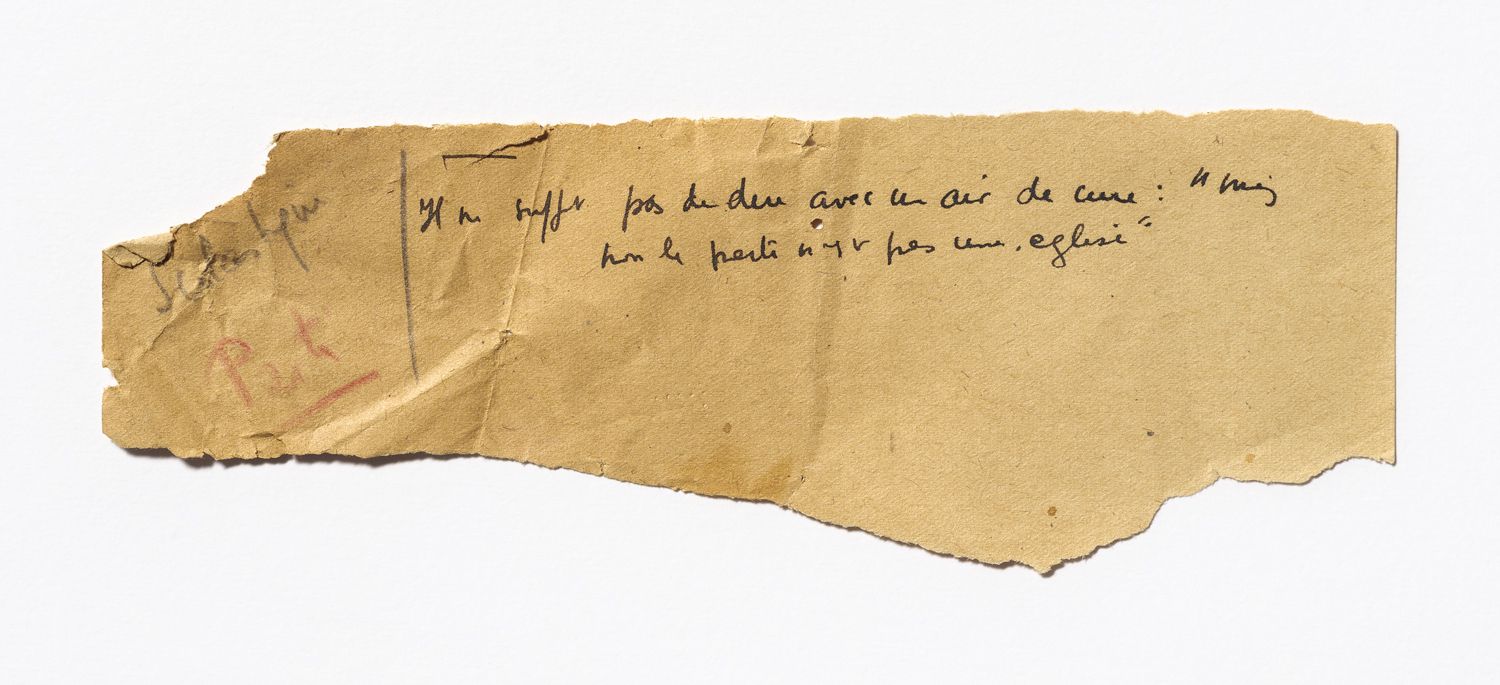 Scolastique
Parti
Il ne suffit pas de dire avec un air de cure : "mais
non le parti n'est pas une eglise"